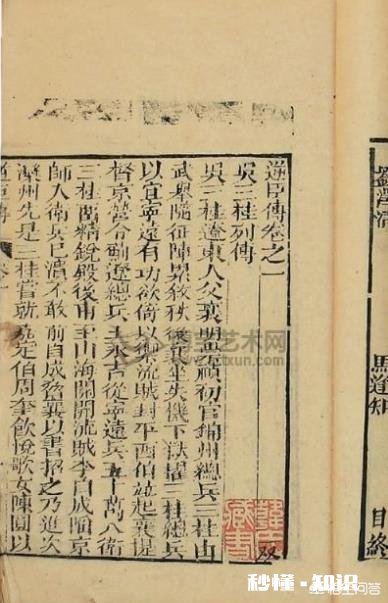 馬逢知
目終
逆臣傳卷之一
吳三桂列傳
吳三桂遼東人父襄明崇禎初官錦州總兵三桂由
武舉隨征陣累敘秩後襄坐失機下獄擢三桂總兵
以宜寧遠有功欲倚以禦流賊封平西伯並起襄提
督京營合薊遼總兵王永吉從寧遠兵五十萬入衛
三桂簡精銳殿後甫至山海關聞流賊李自成陷京
師入衛兵已潰不敢前自成脅襄以書招之乃進次
灤州先是三桂嘗就嘉定伯周奎飲悅歌女陳圓以
藏書
双
秒懂·知识